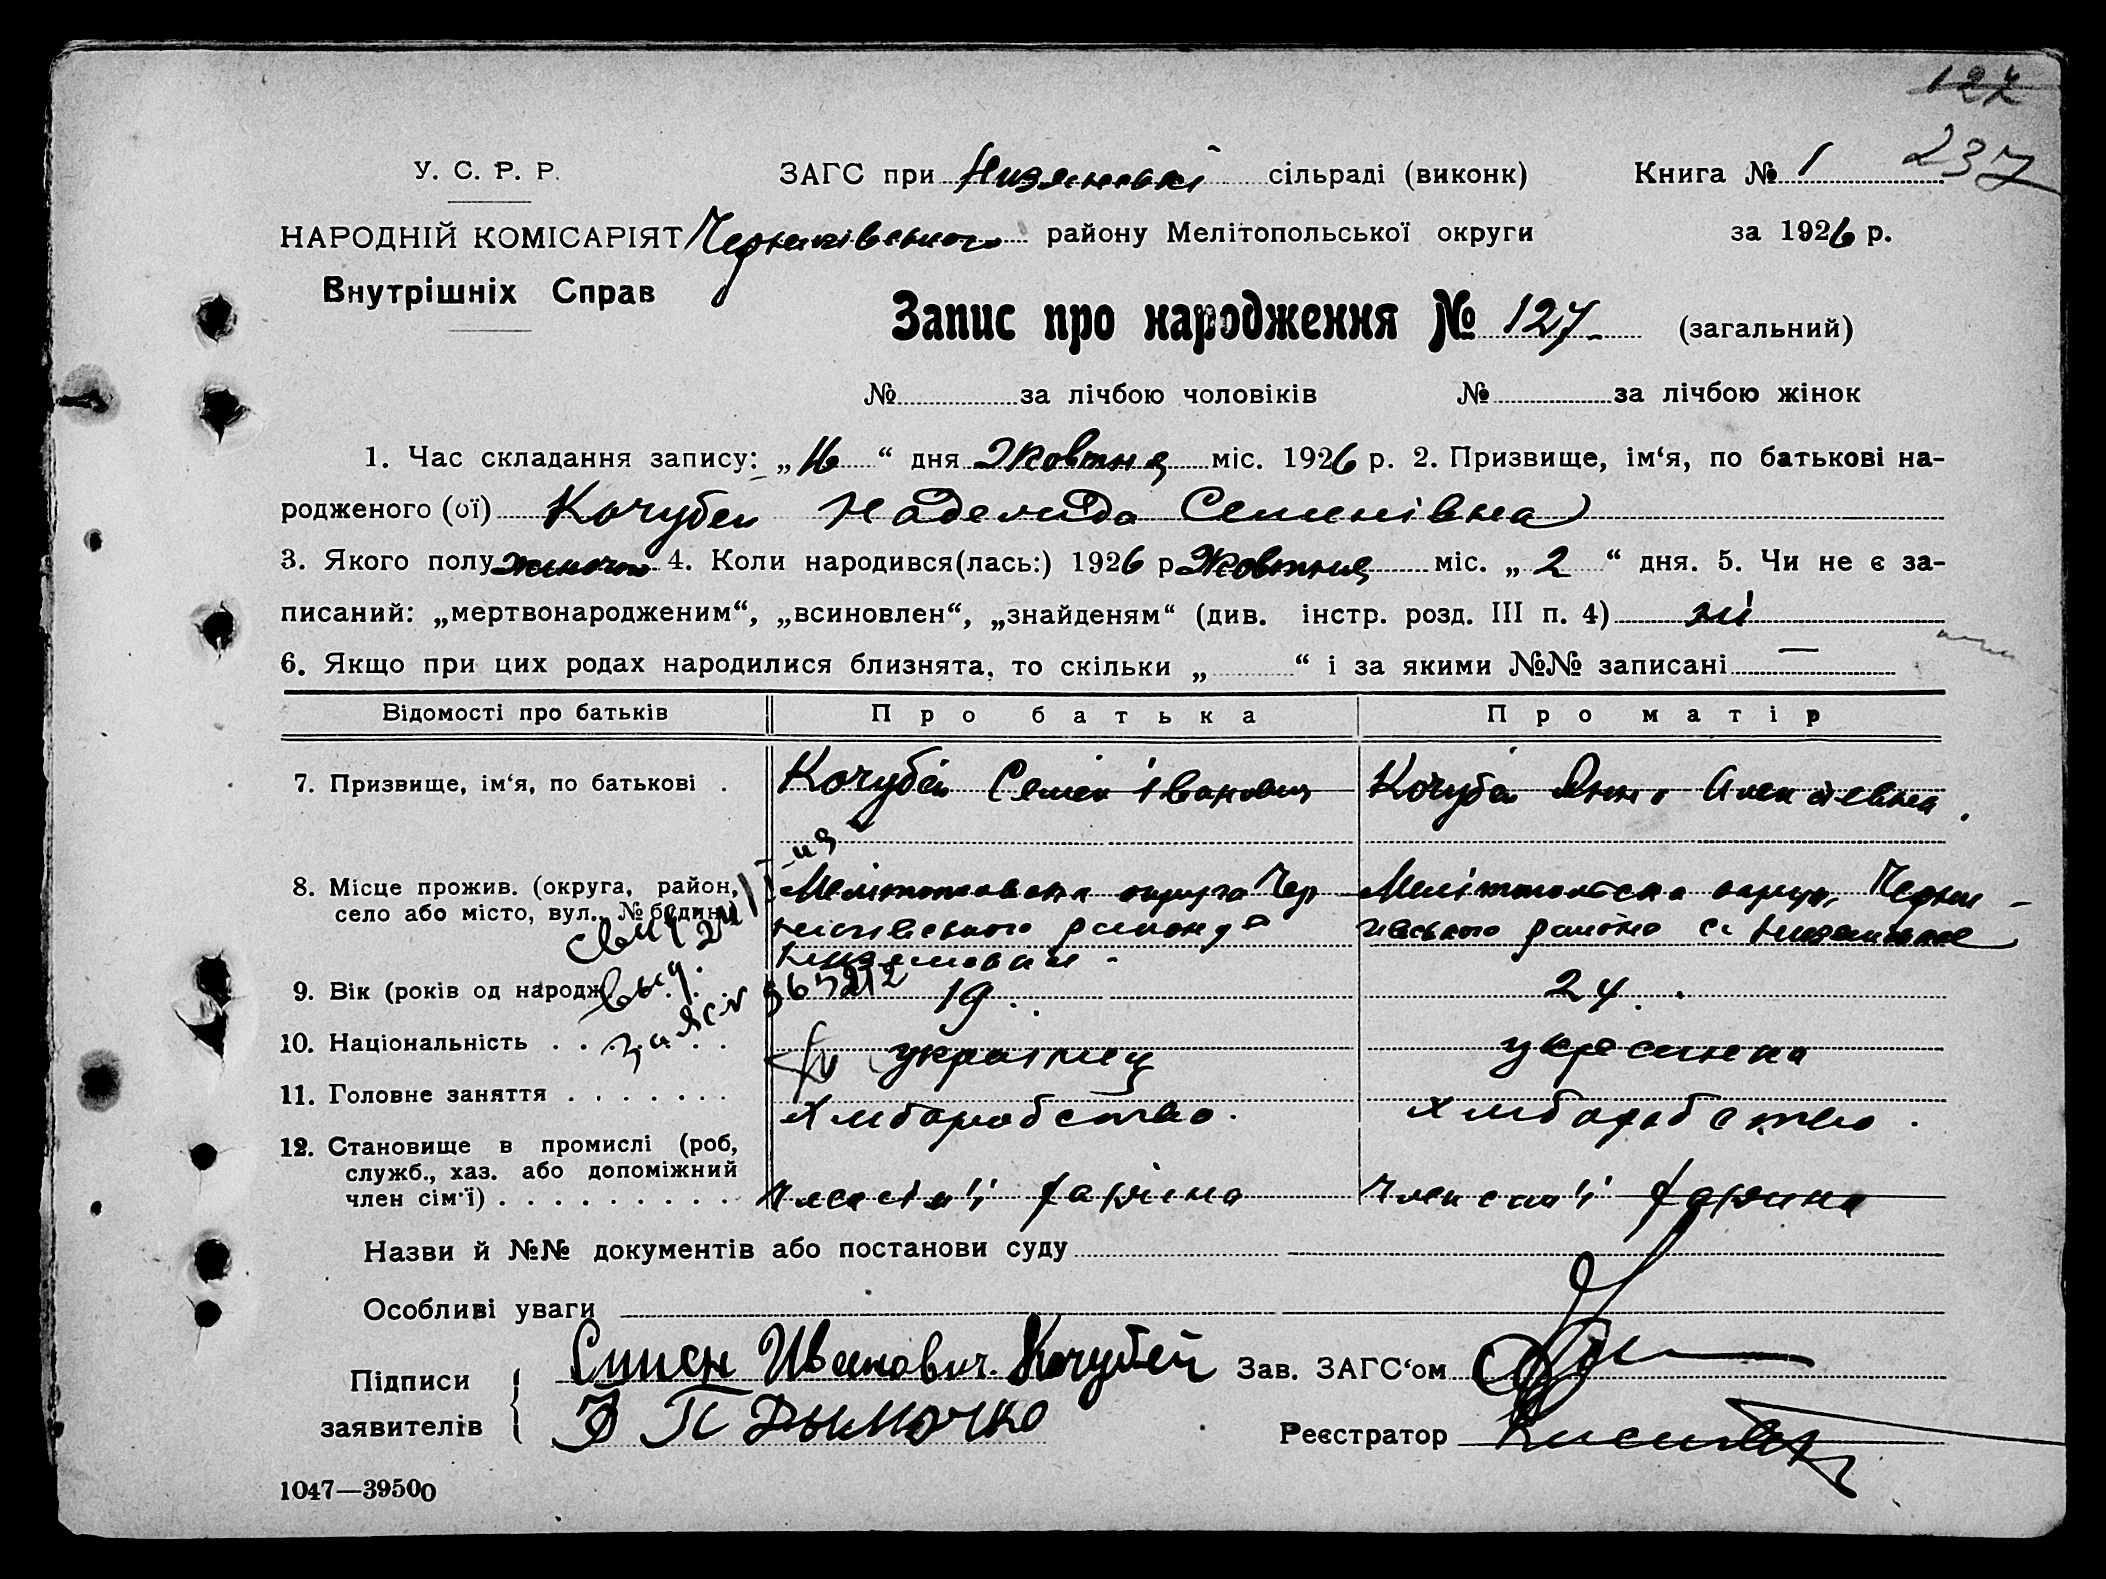 127
237
У. С. Р. Р. ЗАГС при Низянські сільраді (виконк) Книга № 1
НАРОДНІЙ КОМІСАРІЯТ Чернигівського району Мелітопольської округи за 1926 р.
Внутрішніх Справ
Запис про народження № 127 (загальний)
№ за лічбою чоловіків № за лічбою жінок
1. Час складання запису: „16“ дня Жовтня міс. 1926 р. 2. Призвище, ім‘я, по батькові на-
родженого (ої) Кочубей Надежда Семенівна
3. Якого полу жіночо 4. Коли народився(лась:) 1926 р. Жовтня міс. „2“ дня. 5. Чи не є за-
писаний: „мертвонародженим“, „всиновлен“, „знайденям“ (див. інстр. розд. III п. 4) ні
6. Якщо при цих родах народилися близнята, то скільки „ “ і за якими №№ записані —
Відомості про батьків Про батька Про матір
7. Призвище, ім‘я, по батькові . Кочубей Семен Іванович Кочубей Анна Алексіевна
8. Місце прожив. (округа, район, Мелітопольська округа Чер Мелітопольська округа Черни-
село або місто, вул., № будин.) нигівського району с гівського району с.
9. Вік (років од народж 19. 24.
10. Національність . . . . українец украинка
11. Головне заняття . . . . . . . хліборобство. хліборобство.
12. Становище в промислі (роб,
служб., хаз. або допоміжний
член сім‘ї) . . . . . . . . . Член сім'ї Член сім'ї
Назви й №№ документів або постанови суду
Особливі уваги
Підписи Семен Иванович Кочубей Зав. ЗАГС‘ом
заявителів П Дымочко Реєстратор
1047—39500